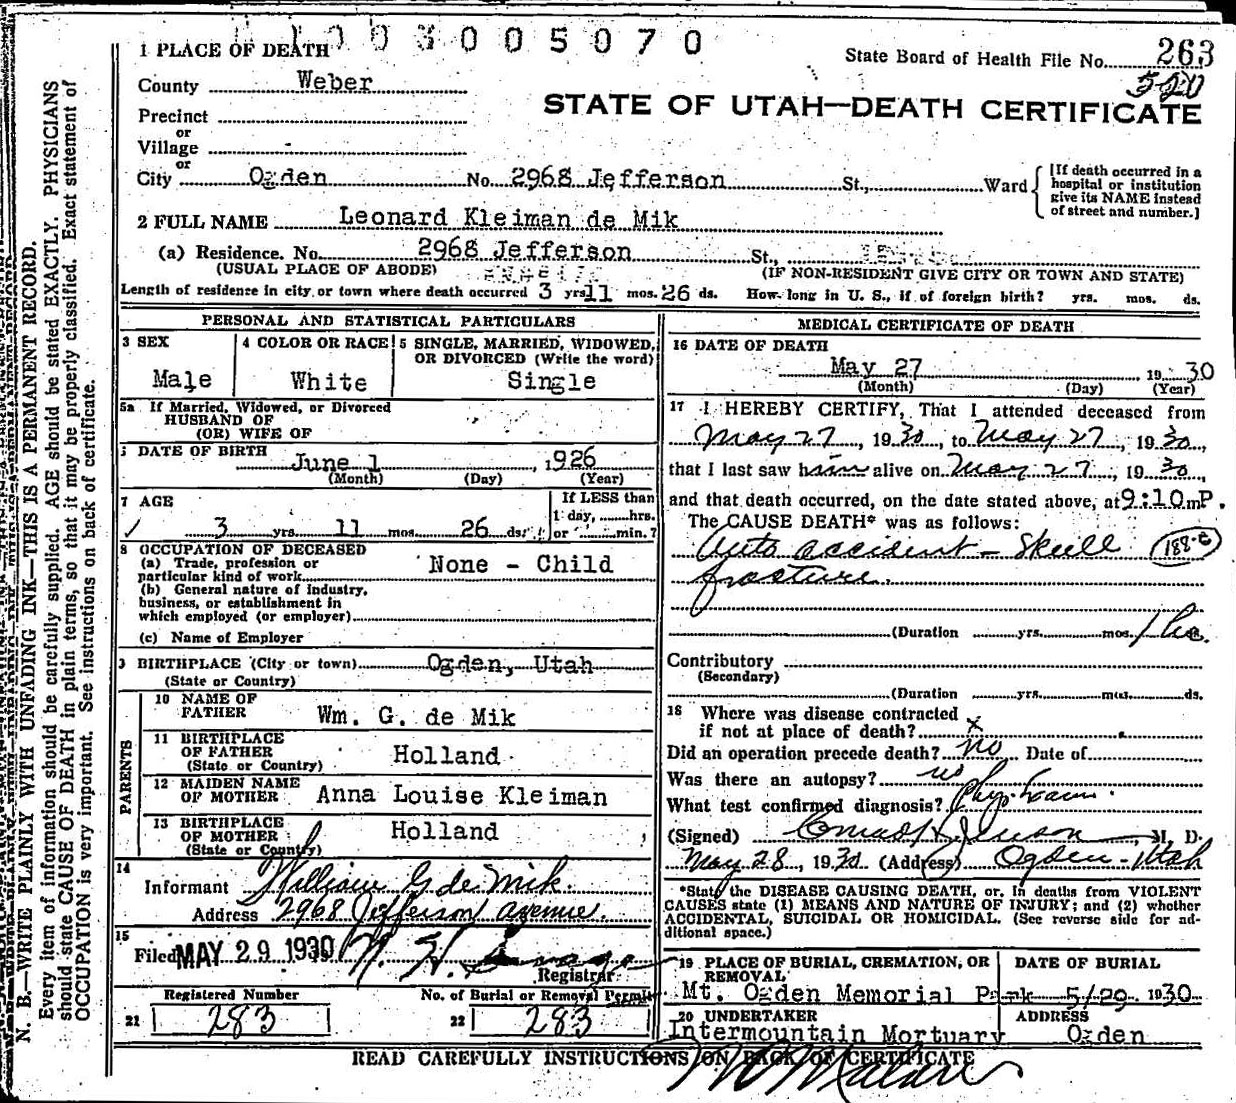 003005070
1 PLACE OF DEATH
State Board of Health File No. 263
520
County Weber
STATE OF UTAH—DEATH CERTIFICATE
Precinct
or
Village
or
City Ogden No. 2968 Jefferson St., Ward
[If death occurred in a hospital or institution give its NAME instead of street and number.]
2 FULL NAME Leonard Kleiman de Mik
(a) Residence. No. 2968 Jefferson St.,
(USUAL PLACE OF ABODE) (IF NON-RESIDENT GIVE CITY OR TOWN AND STATE)
Length of residence in city or town where death occurred 3 yrs 11 mos. 26 ds. How long in U. S., if of foreign birth? yrs. mos. ds.
PERSONAL AND STATISTICAL PARTICULARS
3 SEX
Male
4 COLOR OR RACE
White
5 SINGLE, MARRIED, WIDOWED,
OR DIVORCED (Write the word)
Single
5a If Married, Widowed, or Divorced
HUSBAND OF
(OR) WIFE OF
DATE OF BIRTH
June 1, 1926
(Month) (Day) (Year)
7 AGE
3 yrs. 11 mos. 26 ds.
If LESS than
1 day, hrs.
or min.?
8 OCCUPATION OF DECEASED
(a) Trade, profession or
particular kind of work None - Child
(b) General nature of industry,
business, or establishment in
which employed (or employer)
(c) Name of Employer
BIRTHPLACE (City or town) Ogden, Utah
(State or Country)
PARENTS
10 NAME OF
FATHER Wm. G. de Mik
11 BIRTHPLACE
OF FATHER Holland
(State or Country)
12 MAIDEN NAME
OF MOTHER Anna Louise Kleiman
13 BIRTHPLACE
OF MOTHER Holland
(State or Country)
14
Informant William G de Mik.
Address 2968 Jefferson avenue.
15
Filed MAY 29 1930
Registrar
Registered Number
21 283
No. of Burial or Removal Permit
22 283
MEDICAL CERTIFICATE OF DEATH
16 DATE OF DEATH
May 27, 1930
(Month) (Day) (Year)
17 I HEREBY CERTIFY, That I attended deceased from
May 27, 1930, to May 27, 1930,
that I last saw him alive on May 27, 1930,
and that death occurred, on the date stated above, at 9:10 m P.
The CAUSE DEATH* was as follows:
Auto accident - Skull
fracture.
(Duration yrs. mos.
Contributory
(Secondary)
(Duration yrs. mos. ds.
18 Where was disease contracted
if not at place of death? x
Did an operation precede death? no Date of
Was there an autopsy? no
What test confirmed diagnosis?
(Signed) M. D.
May 28, 1930 (Address) Ogden - Utah
*State the DISEASE CAUSING DEATH, or, in deaths from VIOLENT
CAUSES state (1) MEANS AND NATURE OF INJURY; and (2) whether
ACCIDENTAL, SUICIDAL OR HOMICIDAL. (See reverse side for ad-
ditional space.)
19 PLACE OF BURIAL, CREMATION, OR
REMOVAL
Mt. Ogden Memorial Park
DATE OF BURIAL
5/29 1930
20 UNDERTAKER
Intermountain Mortuary
ADDRESS
Ogden
READ CAREFULLY INSTRUCTIONS ON BACK OF CERTIFICATE
N. B.—WRITE PLAINLY WITH UNFADING INK—THIS IS A PERMANENT RECORD.
Every item of information should be carefully supplied. AGE should be stated EXACTLY. PHYSICIANS
should state CAUSE OF DEATH in plain terms, so that it may be properly classified. Exact statement of
OCCUPATION is very important. See instructions on back of certificate.